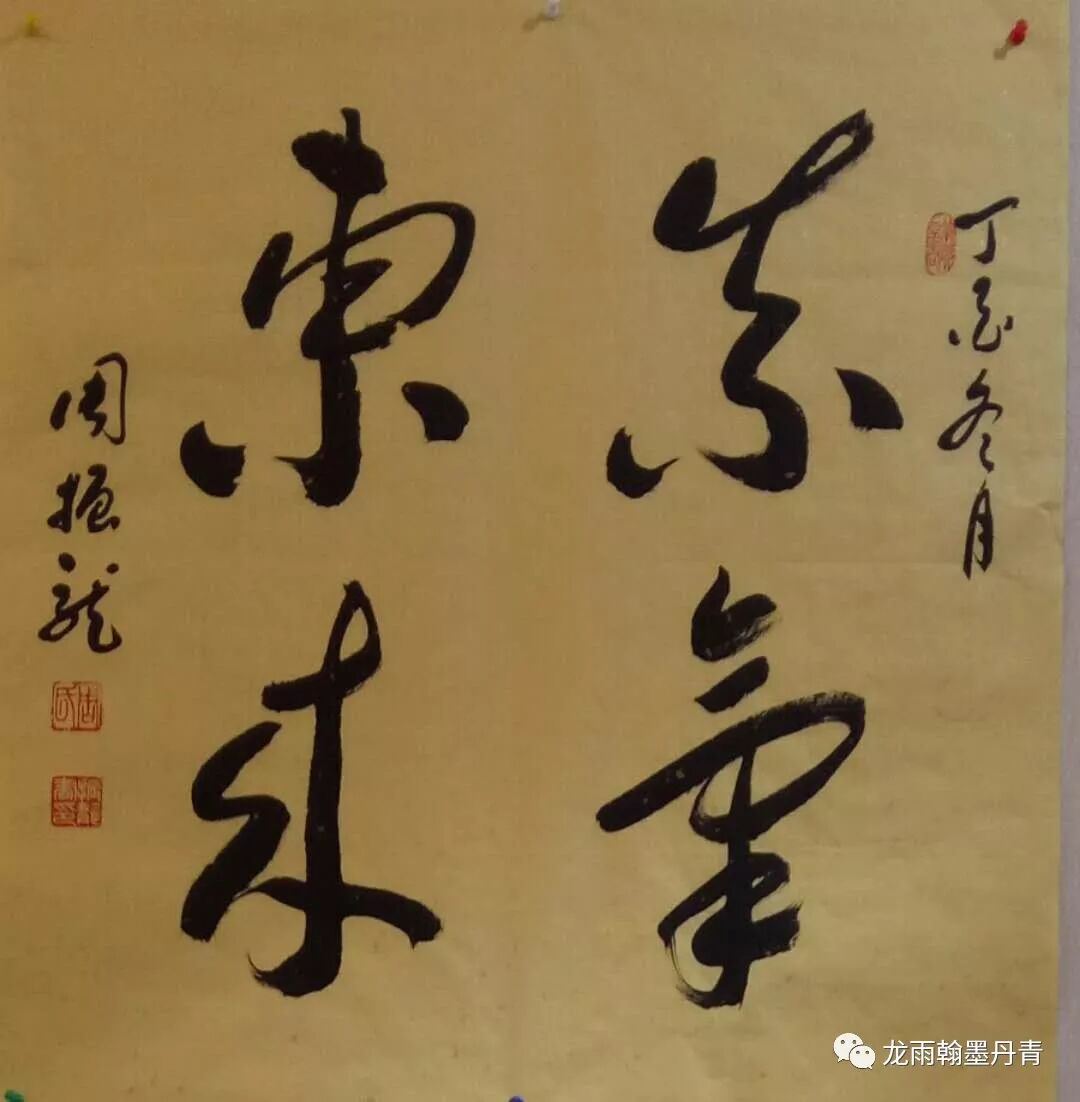 丁酉冬月
紫氣
東來
周振龍
周氏
龙雨翰墨丹青